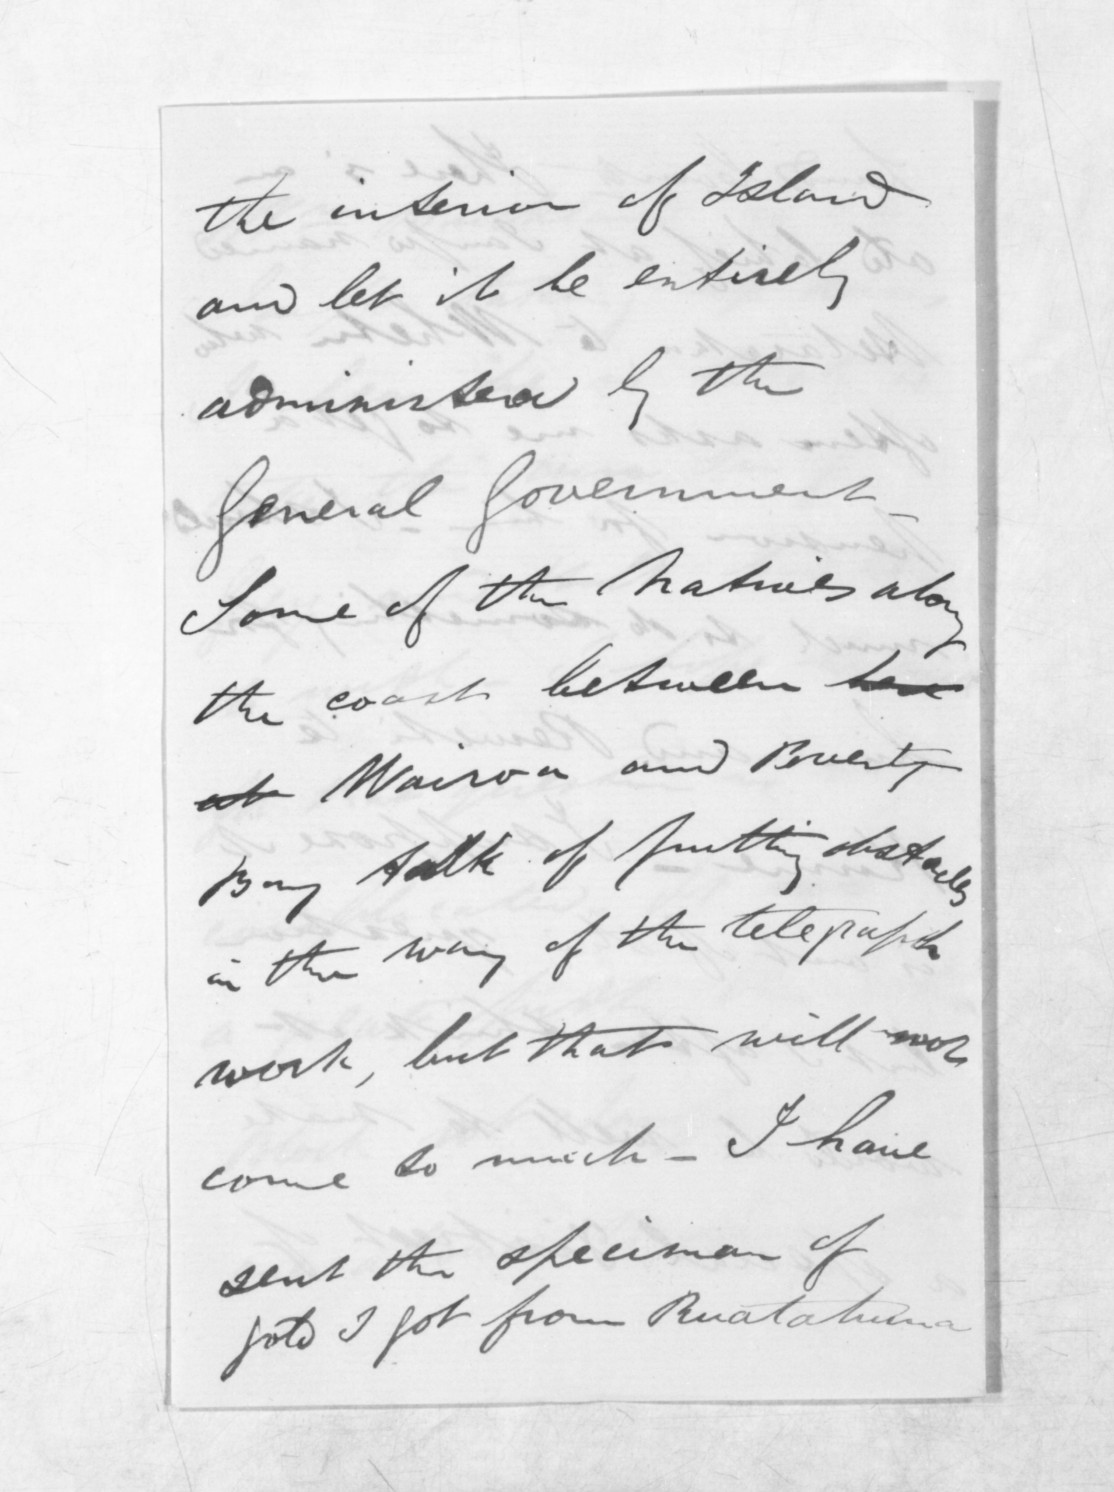 the interior of Island
and let it be entirely
administered by the
General Government -
Some of the Natives along
the coast between
at Wairoa and Poverty
Bay talk of putting obstacles
in the way of the telegraph
work, but that will not
come to much - I have
sent the speciman of
gold I got from Ruatahuna